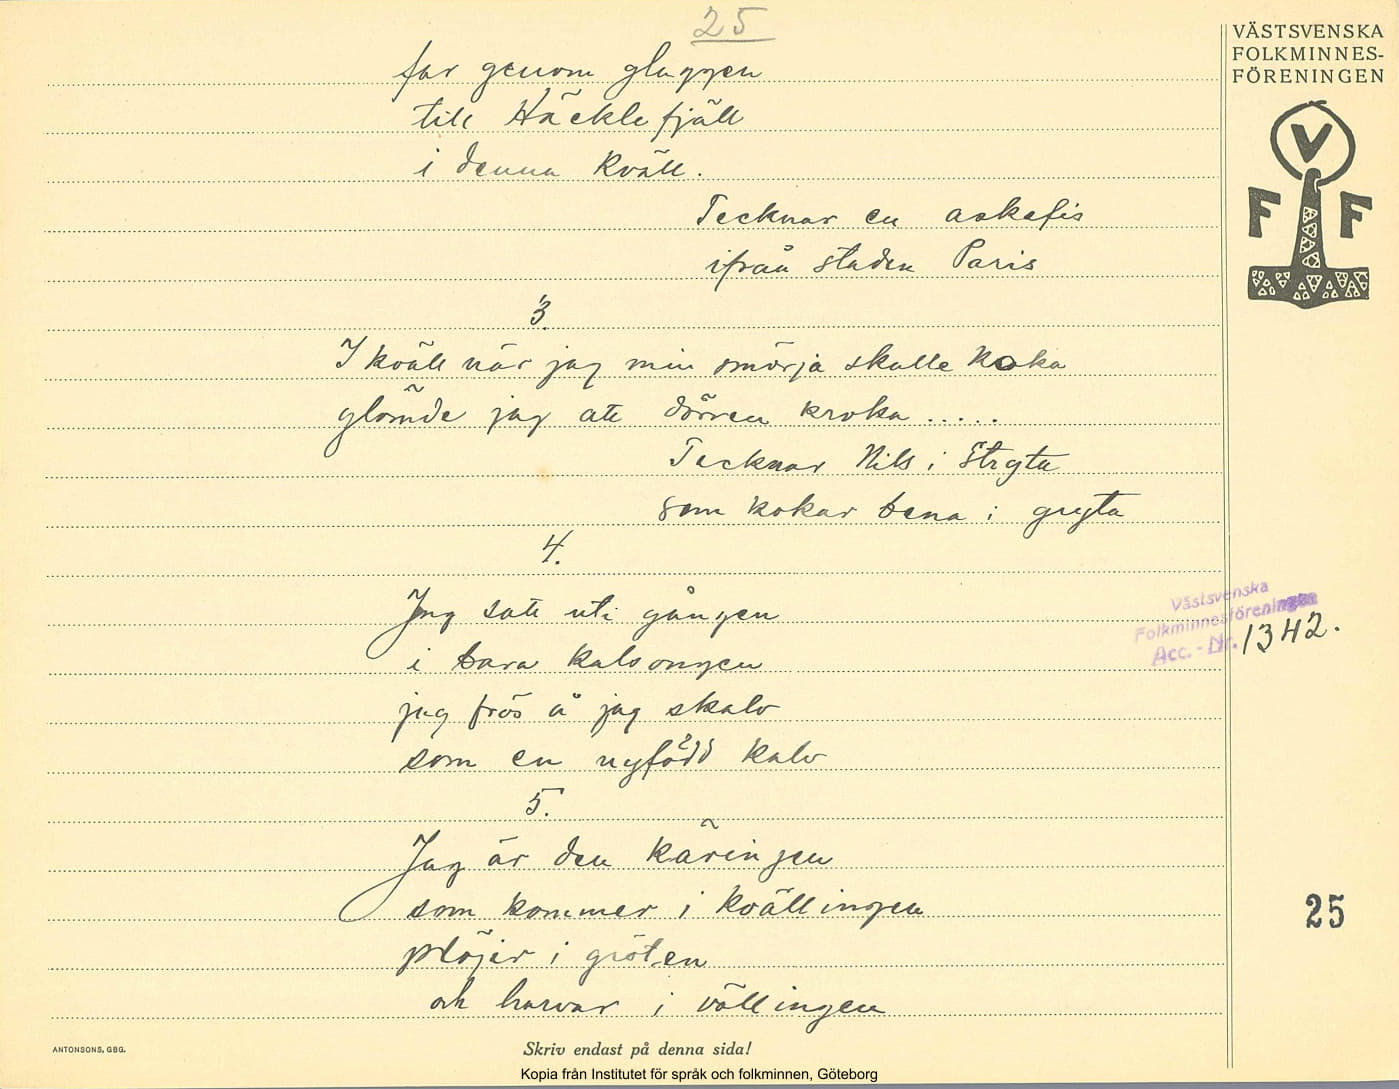 25
far genom gluggen
till Häcklefjäll
i denna kväll.
Tecknar en askefis
ifrån staden Paris
3.
I kväll när jag min smörja skulle koka
glömde jag att dörren kroka .....
Tecknar Nils i Stryta
som kokar bena i gryta
4.
Jag satt uti gången
i bara kalsongen
jag frös å jag skalv
som en nyfödd kalv
5.
Jag är den käringen
som kommer i kvällingen
plöjer i gröten
och harvar i vällingen
VÄSTSVENSKA
FOLKMINNES-
FÖRENINGEN
V
F F
Västsvenska
Folkminnesföreningen
Acc. - Nr. 1342.
25
ANTONSONS, GBG.
Skriv endast på denna sida!
Kopia från Institutet för språk och folkminnen, Göteborg